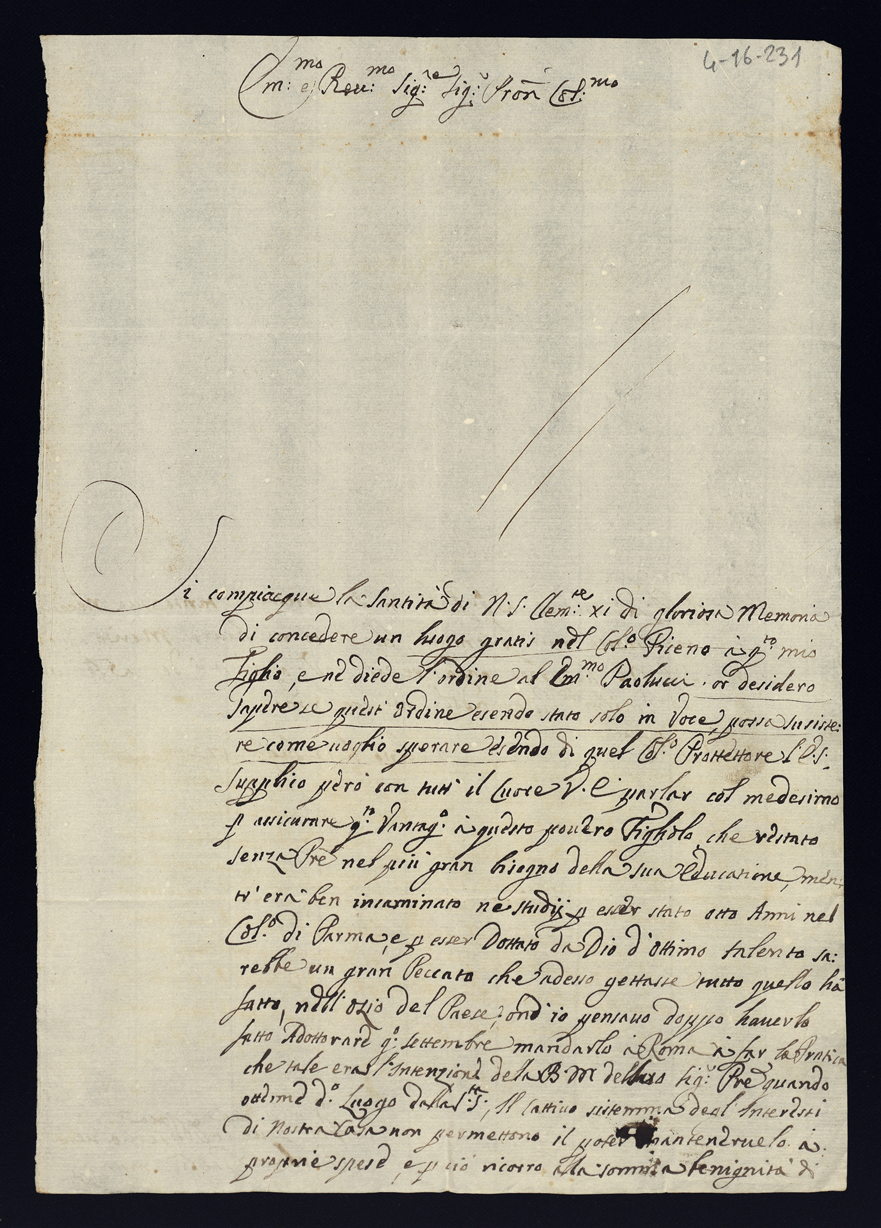 4-16-231
Em:mo e Reu:mo Sig:re Sig:r Pron Col:mo
Si compiacque la Santità di N. S. Clem:te XI di gloriosa Memoria
di concedere un luogo gratis nel Col:o Piceno à q:to mio
Figlio, e nè diede l'ordine al Em:mo Paolucci. or desidero
sapere se quest'ordine esendo stato solo in Voce, possa susiste:
re come uoglio sperare esendo di quel Col:o Prottettore l'E.S.
supplico però con tutt'il Cuore V.E. parlar col medesimo
p assicurare q:to Vantag:o à questo pouero Figliolo, che restato
senza Pre nel più gran bisogno della sua educazione, men:
tr'era ben incaminato ne studij p esser stato otto Anni nel
Col:o di Parma, e p esser Dottato da Dio d'ottimo talento sa:
rebbe un gran Peccato che adesso gettasse tutto quello hà
fatto, nell'Ozio del Paese, ond'io pensauo doppo hauerlo
fatto Adottorare q:o Settembre mandarlo à Roma à far la Pratica
che tale era l'Intenzione dela B M del suo Sig:r Pre quando
ottenne d:o Luogo dalla S:tà S:, Il Cattiuo sistemma degl'Interesti
di Nostra Casa non permettono il poter manteneruelo à
proprie spese, e p ciò ricorro alla somma benignità di